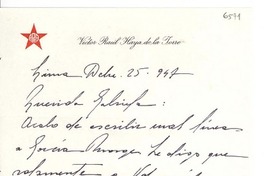 6571
Víctor Raúl Haya de la Torre
Lima Dcbe. 25. 947
Querida Gabriela:
Acabo de escribir unas líneas
a García Monge. Le digo que